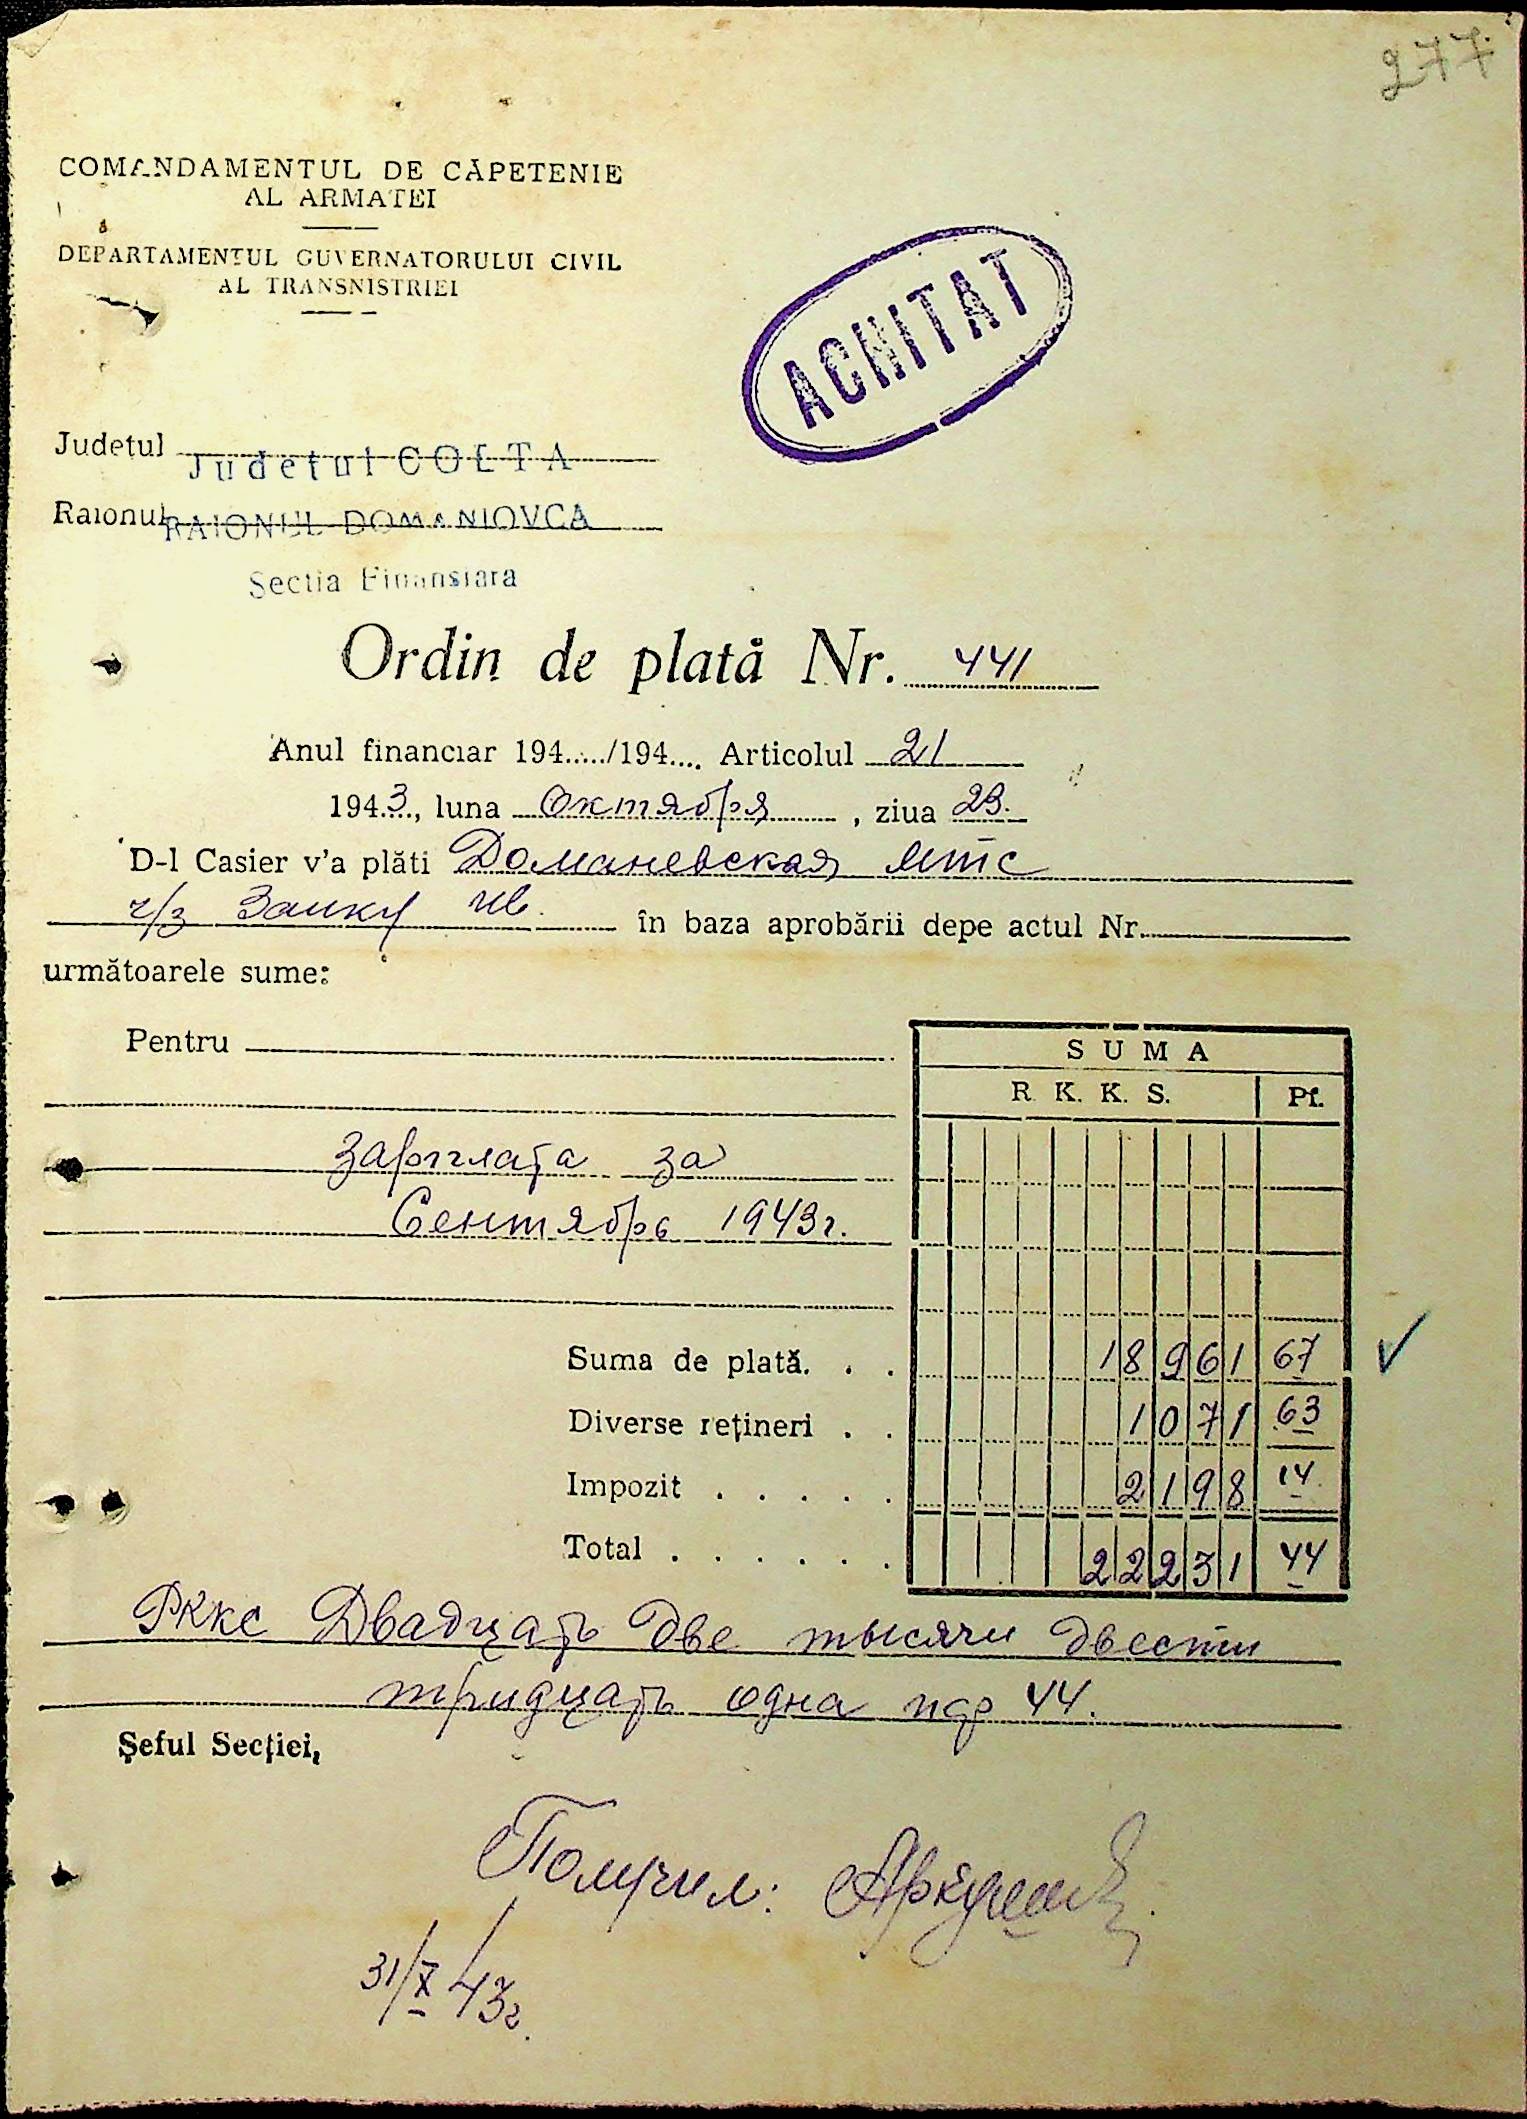 277
COMANDAMENTUL DE CĂPETENIE
AL ARMATEI
DEPARTAMENTUL GUVERNATORULUI CIVIL
AL TRANSNISTRIEI
ACHITAT
Județul Judetul GOLTA
Raionul RAIONUL DOMANIOVCA
Sectia Finansiara
Ordin de plată Nr. 441
Anul financiar 194...../194.... Articolul 21
1943, luna Октября, ziua 23.
D-l Casier v'a plăti Доманевская МТС
ч/з Заику Ив. în baza aprobării depe actul Nr.
următoarele sume:
Pentru
SUMA
R. K. K. S. Pf.
зарплата за
Сентябрь 1943г.
Suma de plată. . . 18961 67
Diverse rețineri . . 1071 63
Impozit . . . . . 2198 14
Total . . . . . . 22231 44
РККС Двадцать две тысячи двести
тридцать одна пф 44.
Șeful Secției,
Получил:
31/X 43г.